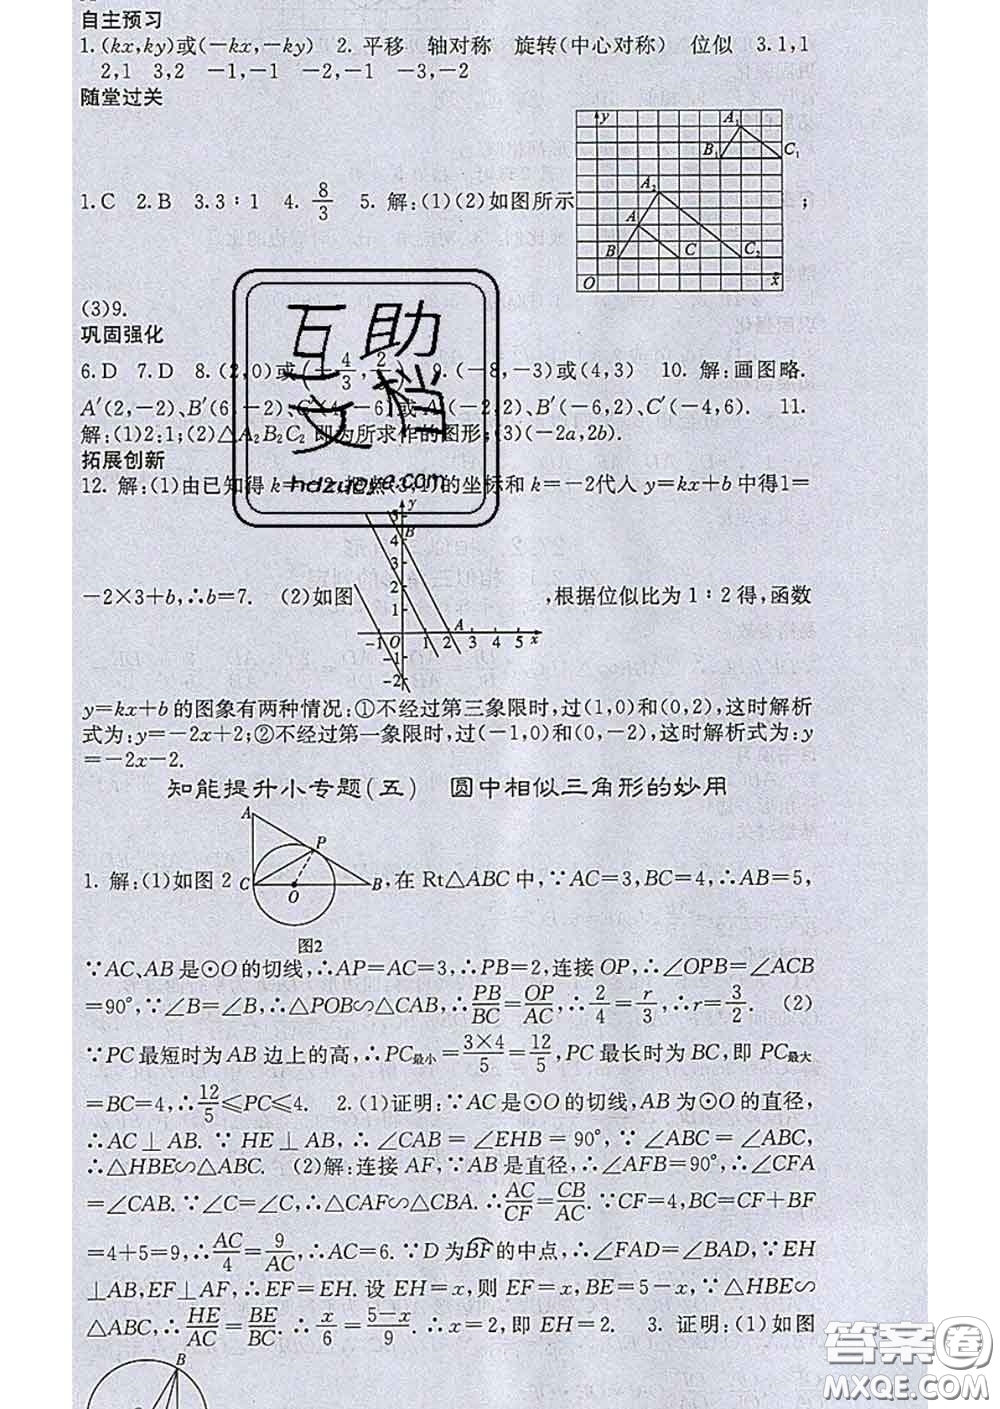 自主预习
1. (kx,ky)或(-kx,-ky) 2. 平移 轴对称 旋转(中心对称) 位似 3. 1,1
2,1 3,2 -1,-1 -2,-1 -3,-2
随堂过关
y A₁ B₁ C₁ A₂ A B C C₂ O x
1. C 2. B 3. 3∶1 4. 8/3 5. 解:(1)(2)如图所示 ;
(3)9.
巩固强化
6. D 7. D 8. (2,0)或(-4/3, 2/ ) 9. (-8,-3)或(4,3) 10. 解:画图略.
A′(2,-2)、B′(6,-2)、C′(4,-6)或A (-2,2)、B′(-6,2)、C′(-4,6). 11.
解:(1)2:1;(2)△A₂B₂C₂即为所求作的图形;(3)(-2a,2b).
拓展创新
12. 解:(1)由已知得k=-2,把点(3,1)的坐标和k=-2代人y=kx+b中得1=
y 5 B 4 3 2 1 A -1 O 1 2 3 4 5 x -1 -2
-2×3+b,∴b=7. (2)如图 ,根据位似比为1∶2得,函数
y=kx+b的图象有两种情况:①不经过第三象限时,过(1,0)和(0,2),这时解析
式为:y=-2x+2;②不经过第一象限时,过(-1,0)和(0,-2),这时解析式为:y
=-2x-2.
知能提升小专题(五) 圆中相似三角形的妙用
A P C O B
1. 解:(1)如图2 ,在Rt△ABC中,∵AC=3,BC=4,∴AB=5,
图2
∵AC、AB是⊙O的切线,∴AP=AC=3,∴PB=2,连接OP,∴∠OPB=∠ACB
=90°,∵∠B=∠B,∴△POB∽△CAB,∴PB/BC=OP/AC,∴2/4=r/3,∴r=3/2. (2)
∵PC最短时为AB边上的高,∴PC最小=3×4/5=12/5,PC最长时为BC,即PC最大
=BC=4,∴12/5≤PC≤4. 2. (1)证明:∵AC是⊙O的切线,AB为⊙O的直径,
∴AC⊥AB. ∵HE⊥AB,∴∠CAB=∠EHB=90°,∵∠ABC=∠ABC,
∴△HBE∽△ABC. (2)解:连接AF,∵AB是直径,∴∠AFB=90°,∴∠CFA
=∠CAB. ∵∠C=∠C,∴△CAF∽△CBA. ∴AC/CF=CB/AC. ∵CF=4,BC=CF+BF
=4+5=9,∴AC/4=9/AC,∴AC=6. ∵D为BF的中点,∴∠FAD=∠BAD,∵EH
⊥AB,EF⊥AF,∴EF=EH. 设EH=x,则EF=x,BE=5-x,∵△HBE∽
△ABC,∴HE/AC=BE/BC. ∴x/6=5-x/9. ∴x=2,即EH=2. 3. 证明:(1)如图
B
互助文档
hdzuoye.com
答案圈
MXQE.COM